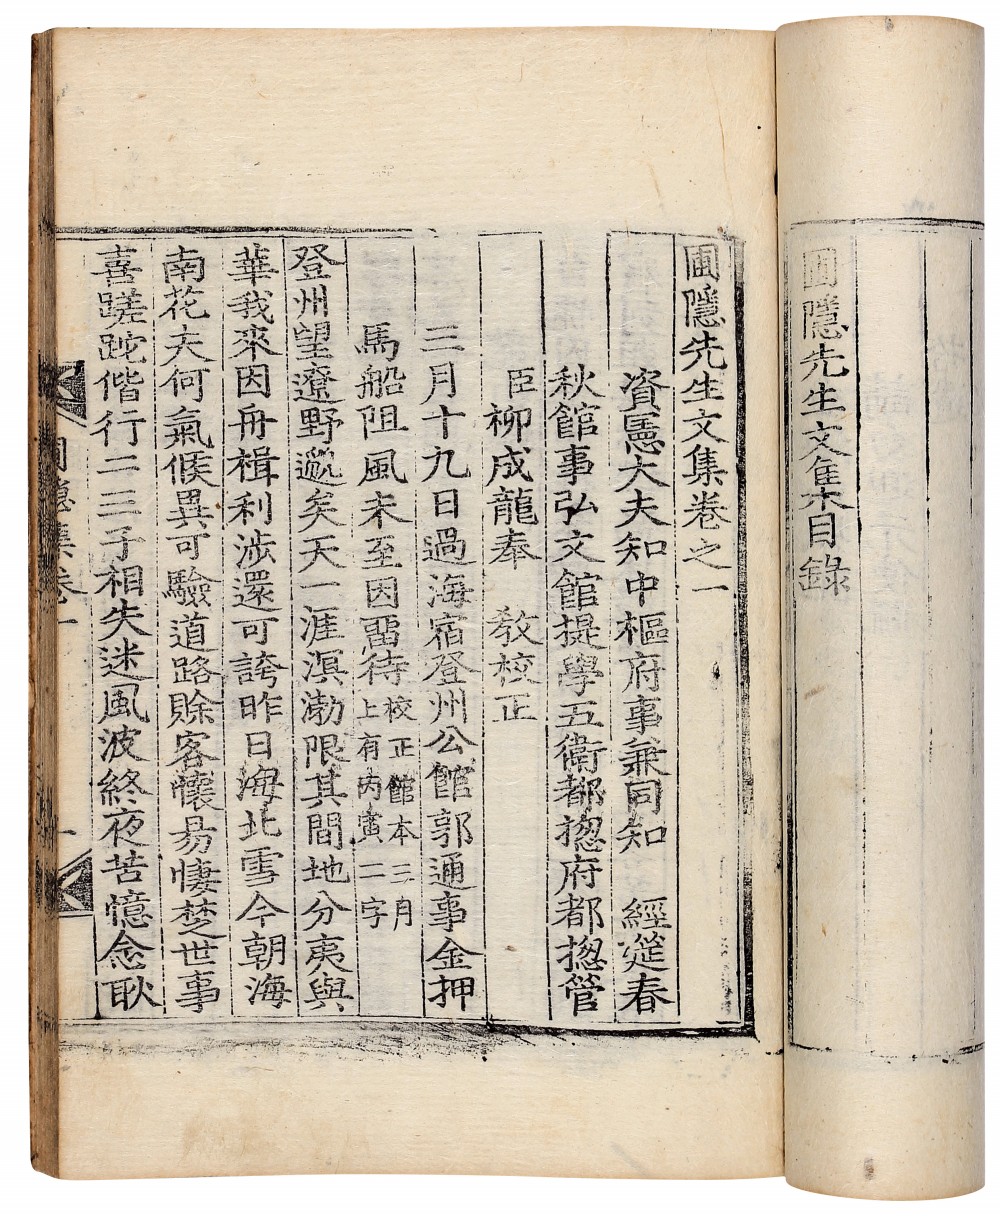 圃隱先生文集目錄
圃隱先生文集卷之一
資憲大夫知中樞府事兼同知 經筵春
秋館事弘文館提學五衛都摠府都摠管
臣柳成龍奉 敎校正
三月十九日過海宿登州公館郭通事金押
馬船阻風未至因留待校正舘本三月
上有丙寅二字
登州望遼野邈矣天一涯溟渤限其間地分夷與
華我來因舟楫利涉還可誇昨日海北雪今朝海
南花夫何氣候異可驗道路賖客懷易悽楚世事
喜蹉跎偕行二三子相失迷風波終夜苦憶念耿
圃隱集卷一
一